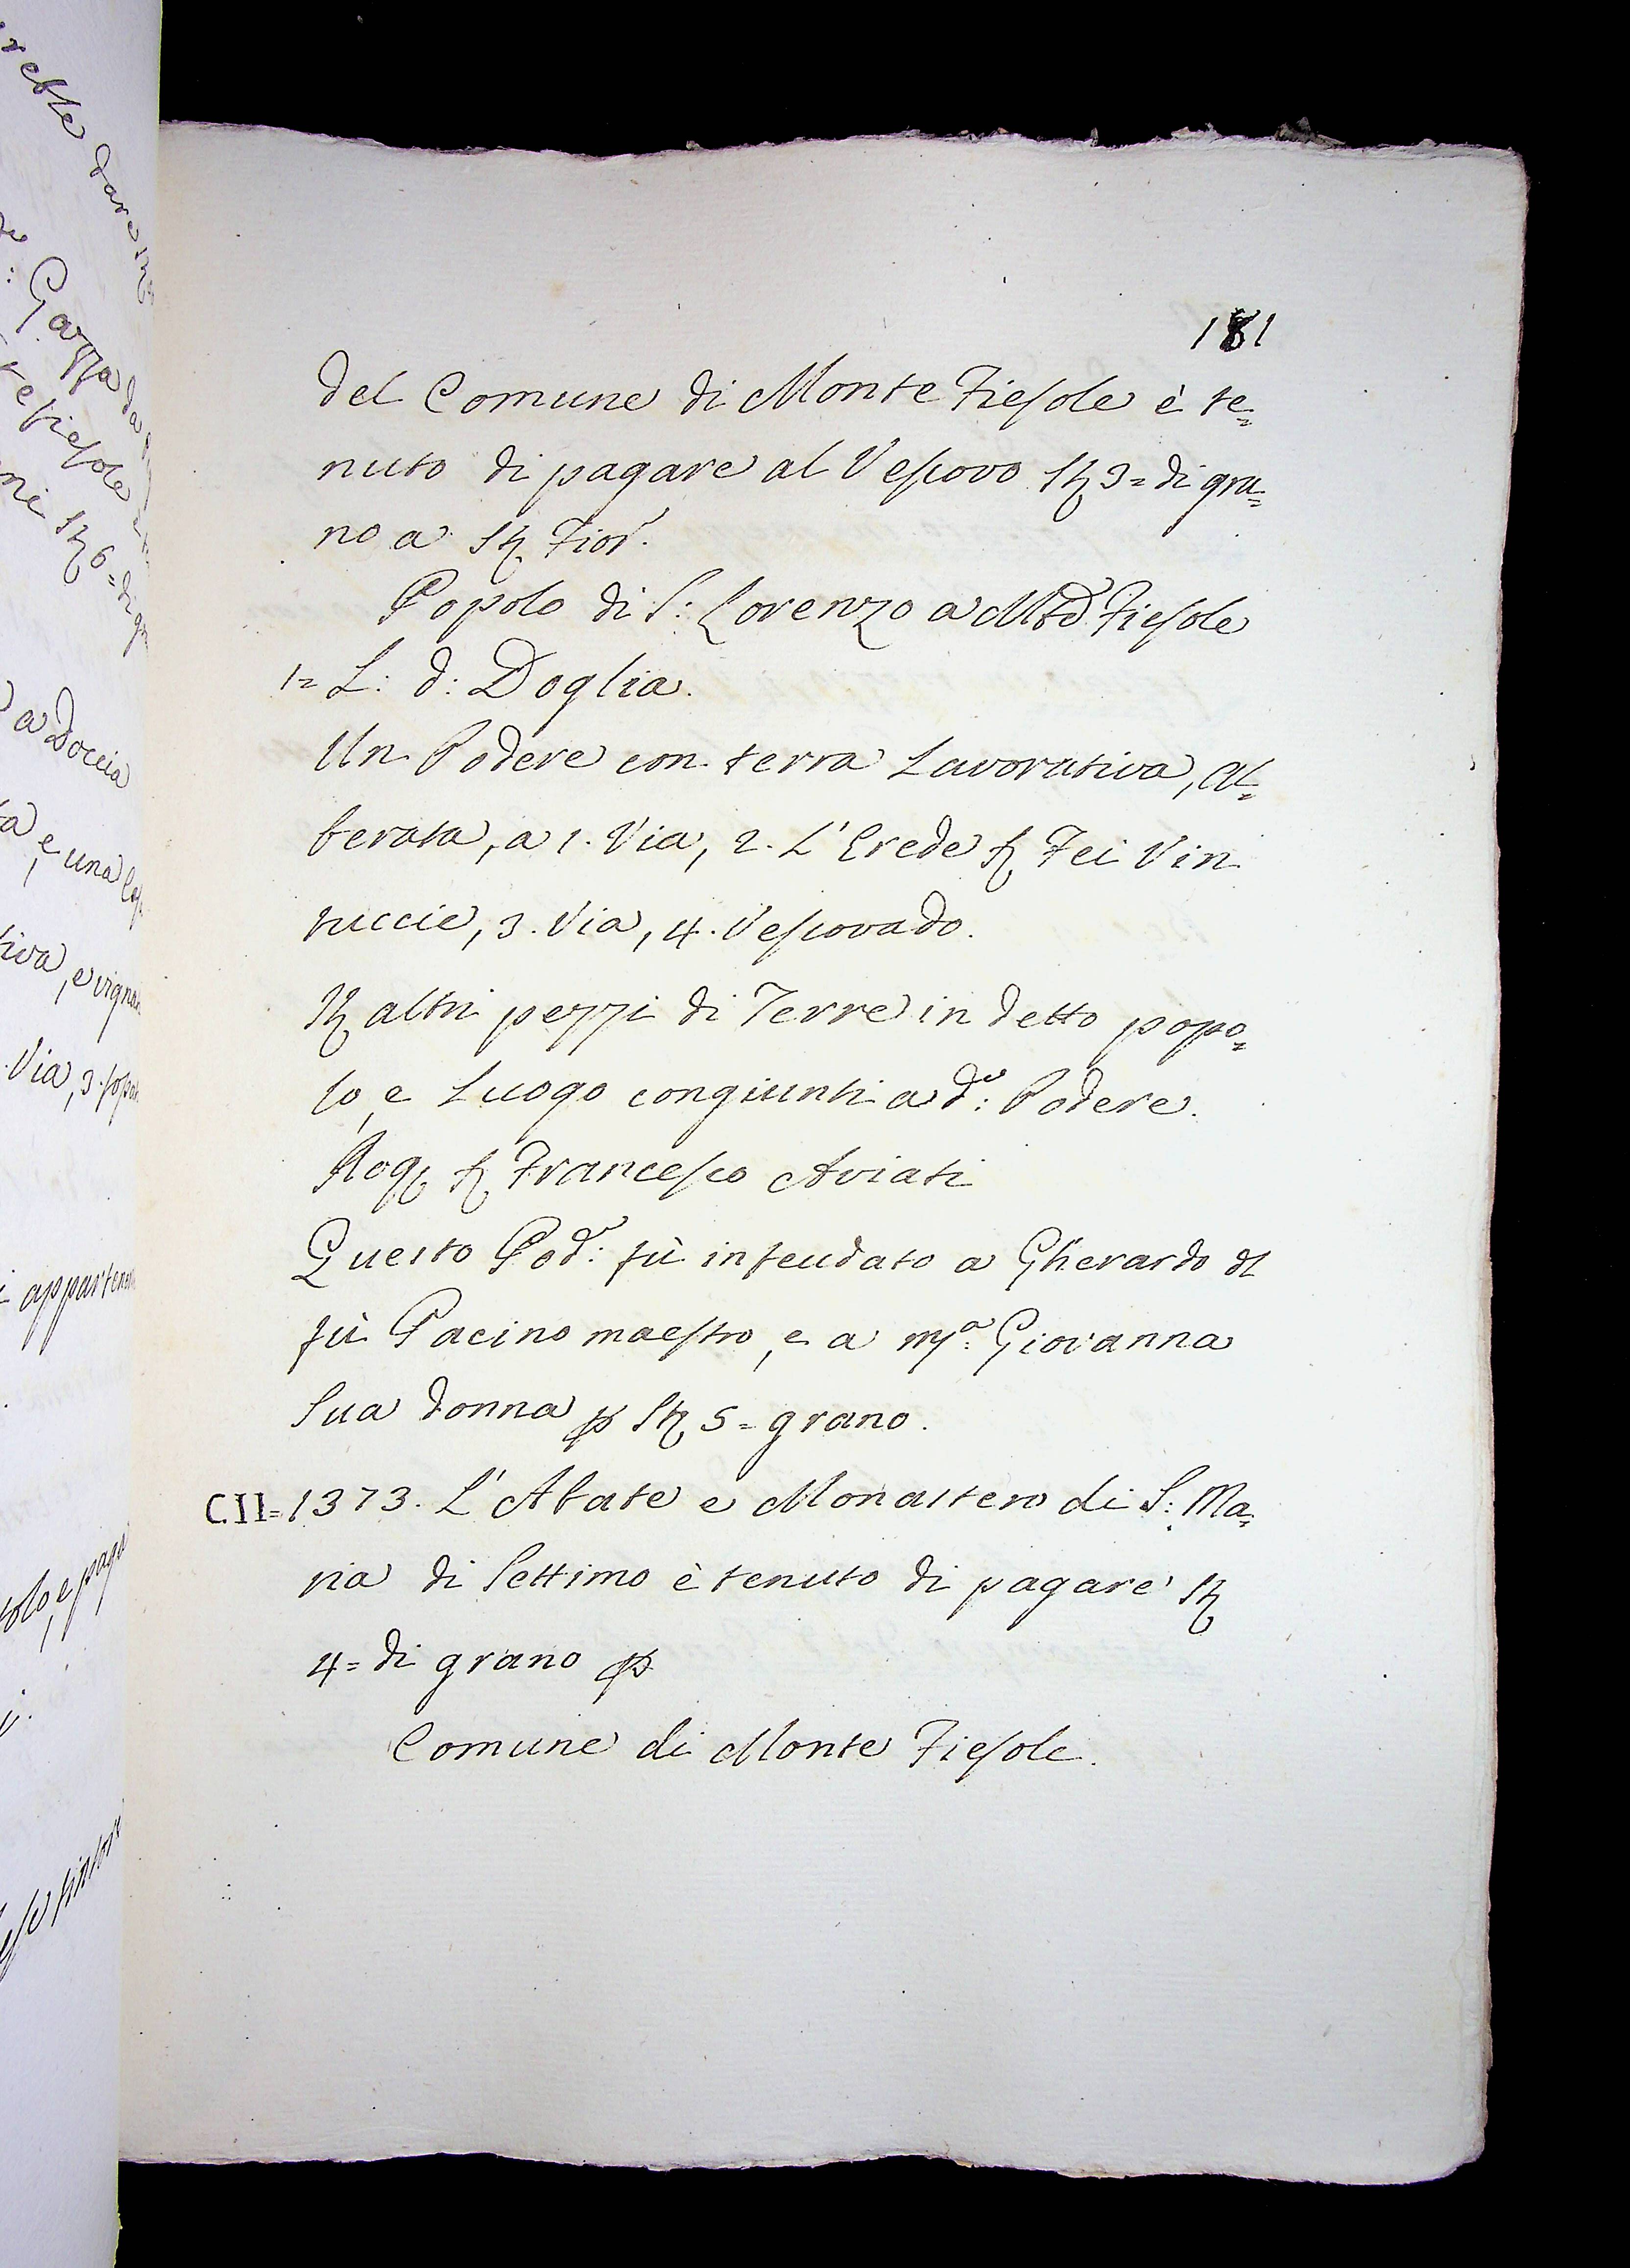 181
del Comune di Monte Fiesole è te=
nuto di pagare al Vescovo St. 3= di gra=
no a St. Fior.
Popolo di S: Lorenzo a Mte Fiesole
1= L: d: Doglia.
Un Podere con terra Lavorativa, al=
berata, a 1. Via, 2. L'Erede Fei Vin
nuccie, 3. Via, 4. Vescovado.
altri pezzi di Terre in detto popo=
lo, e Luogo congiunti a d.º: Podere.
Rog. Francesco Aviati
Questo Pod.e: fù infeudato a Gherardo dl
fù Pacino maestro, e a mª: Giovanna
Sua donna p St. 5= grano.
CII= 1373. L'Abate e Monastero di S: Ma=
ria di Settimo è tenuto di pagare St.
4= di grano p
Comune di Monte Fiesole.